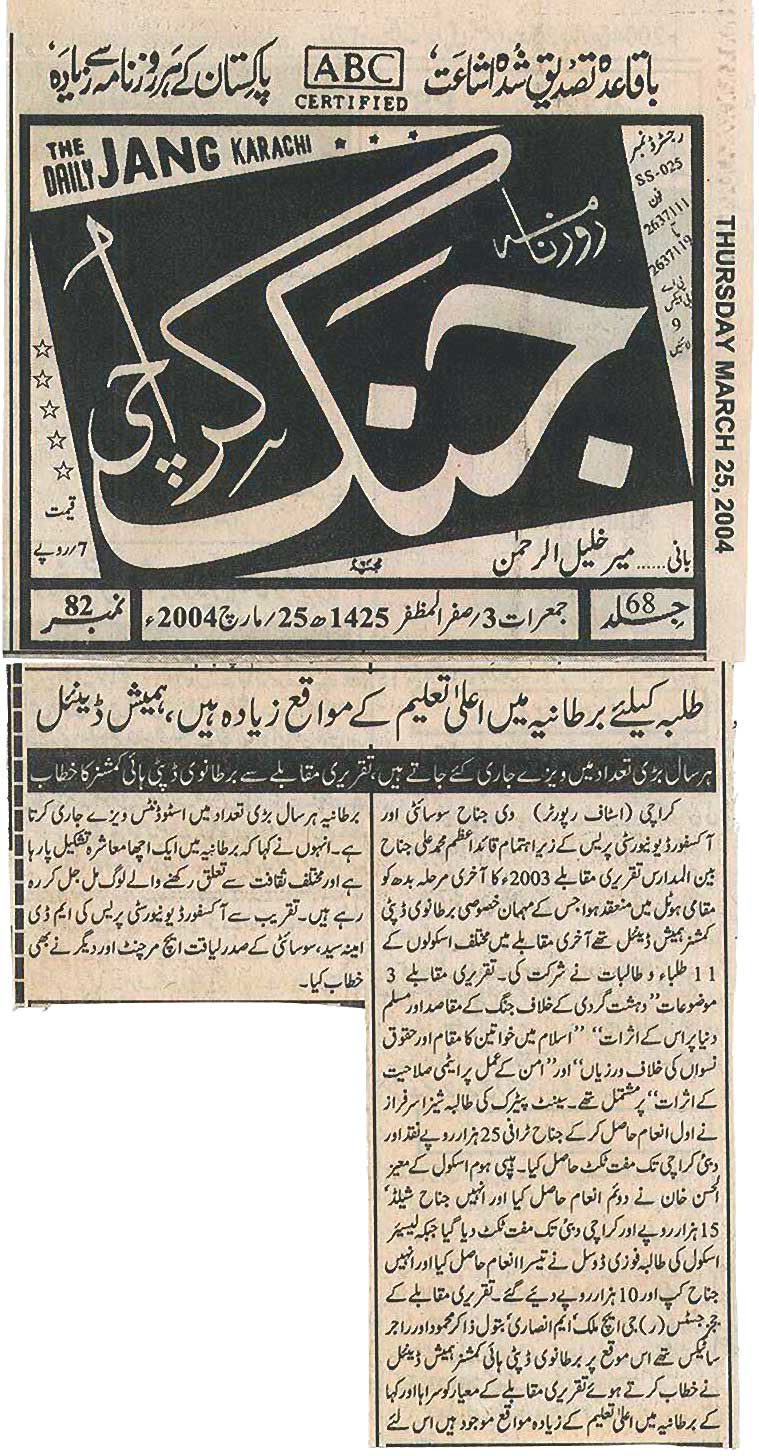 باقاعدہ تصدیق شدہ اشاعت، ABC CERTIFIED پاکستان کے ہر روزنامہ سے زیادہ،
THE DAILY JANG KARACHI
رجسٹرڈ نمبر
SS-025
فون
2637111
تا
2637119
پی اے
بی ایکس
9
لائنیں
THURSDAY MARCH 25, 2004
روزنامہ
جنگ کراچی
قیمت
7/روپے
بانی ..... میر خلیل الرحمٰن
جلد 68
جمعرات 3/صفر المظفر 1425ھ 25/مارچ 2004ء
نمبر 82
طلبہ کیلئے برطانیہ میں اعلیٰ تعلیم کے مواقع زیادہ ہیں، ہمیش ڈینئل
ہر سال بڑی تعداد میں ویزے جاری کئے جاتے ہیں، تقریری مقابلے سے برطانوی ڈپٹی ہائی کمشنر کا خطاب
کراچی (اسٹاف رپورٹر) دی جناح سوسائٹی اور
آکسفورڈ یونیورسٹی پریس کے زیر اہتمام قائداعظم محمد علی جناح
بین المدارس تقریری مقابلے 2003ء کا آخری مرحلہ بدھ کو
مقامی ہوٹل میں منعقد ہوا جس کے مہمان خصوصی برطانوی ڈپٹی
کمشنر ہمیش ڈینئل تھے آخری مقابلے میں مختلف اسکولوں کے
11 طلباء و طالبات نے شرکت کی۔ تقریری مقابلے 3
موضوعات ”دہشت گردی کے خلاف جنگ کے مقاصد اور مسلم
دنیا پر اس کے اثرات“ ”اسلام میں خواتین کا مقام اور حقوق
نسواں کی خلاف ورزیاں“ اور ”امن کے عمل پر ایٹمی صلاحیت
کے اثرات“ پر مشتمل تھے۔ سینٹ پیٹرک کی طالبہ شیزا سرفراز
نے اول انعام حاصل کر کے جناح ٹرافی 25 ہزار روپے نقد اور
دبئی کراچی تک مفت ٹکٹ حاصل کیا۔ ہیپی ہوم اسکول کے معیز
الحسن خان نے دوئم انعام حاصل کیا اور انہیں جناح شیلڈ،
15 ہزار روپے اور کراچی دبئی تک مفت ٹکٹ دیا گیا جبکہ لیسیئر
اسکول کی طالبہ فوزی ڈوسل نے تیسرا انعام حاصل کیا اور انہیں
جناح کپ اور 10 ہزار روپے دیئے گئے۔ تقریری مقابلے کے
ججز جسٹس (ر) جی ایچ ملک، ایم انصاری، بتول ذاکر محمود اور راجر
سائیکس تھے اس موقع پر برطانوی ڈپٹی ہائی کمشنر ہمیش ڈینئل
نے خطاب کرتے ہوئے تقریری مقابلے کے معیار کو سراہا اور کہا
کے برطانیہ میں اعلیٰ تعلیم کے زیادہ مواقع موجود ہیں اس لئے
برطانیہ ہر سال بڑی تعداد میں اسٹوڈنٹس ویزے جاری کرتا
ہے۔ انہوں نے کہا کہ برطانیہ میں ایک اچھا معاشرہ تشکیل پا رہا
ہے اور مختلف ثقافت سے تعلق رکھنے والے لوگ مل جل کر رہ
رہے ہیں۔ تقریب سے آکسفورڈ یونیورسٹی پریس کی ایم ڈی
امینہ سید، سوسائٹی کے صدر لیاقت ایچ مرچنٹ اور دیگر نے بھی
خطاب کیا۔